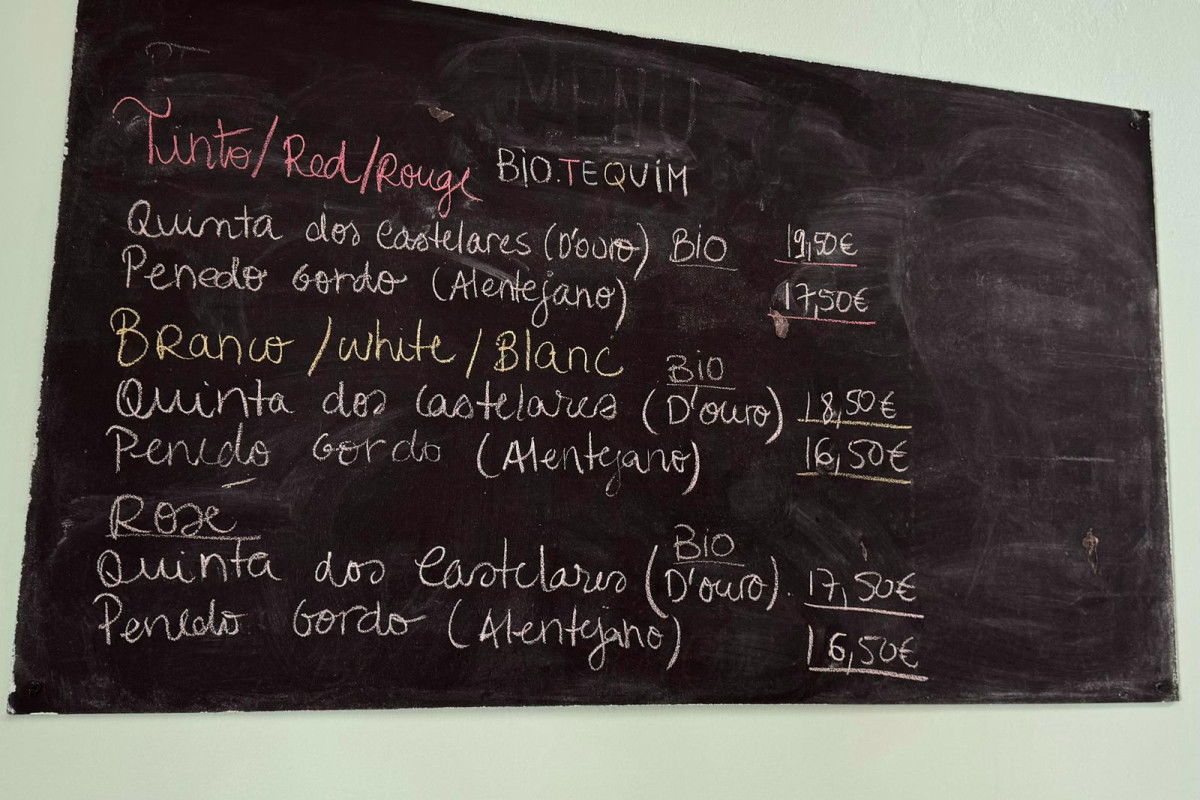 MENU
Tinto/Red/Rouge BIO.TEQUIM
Quinta dos Castelares (D'ouro) BIO 19,50€
Penedo Gordo (Alentejano) 17,50€
Branco/White/Blanc
BIO
Quinta dos Castelares (D'ouro) 18,50€
Penedo Gordo (Alentejano) 16,50€
Rose
BIO
Quinta dos Castelares (D'ouro). 17,50€
Penedo Gordo (Alentejano) 16,50€